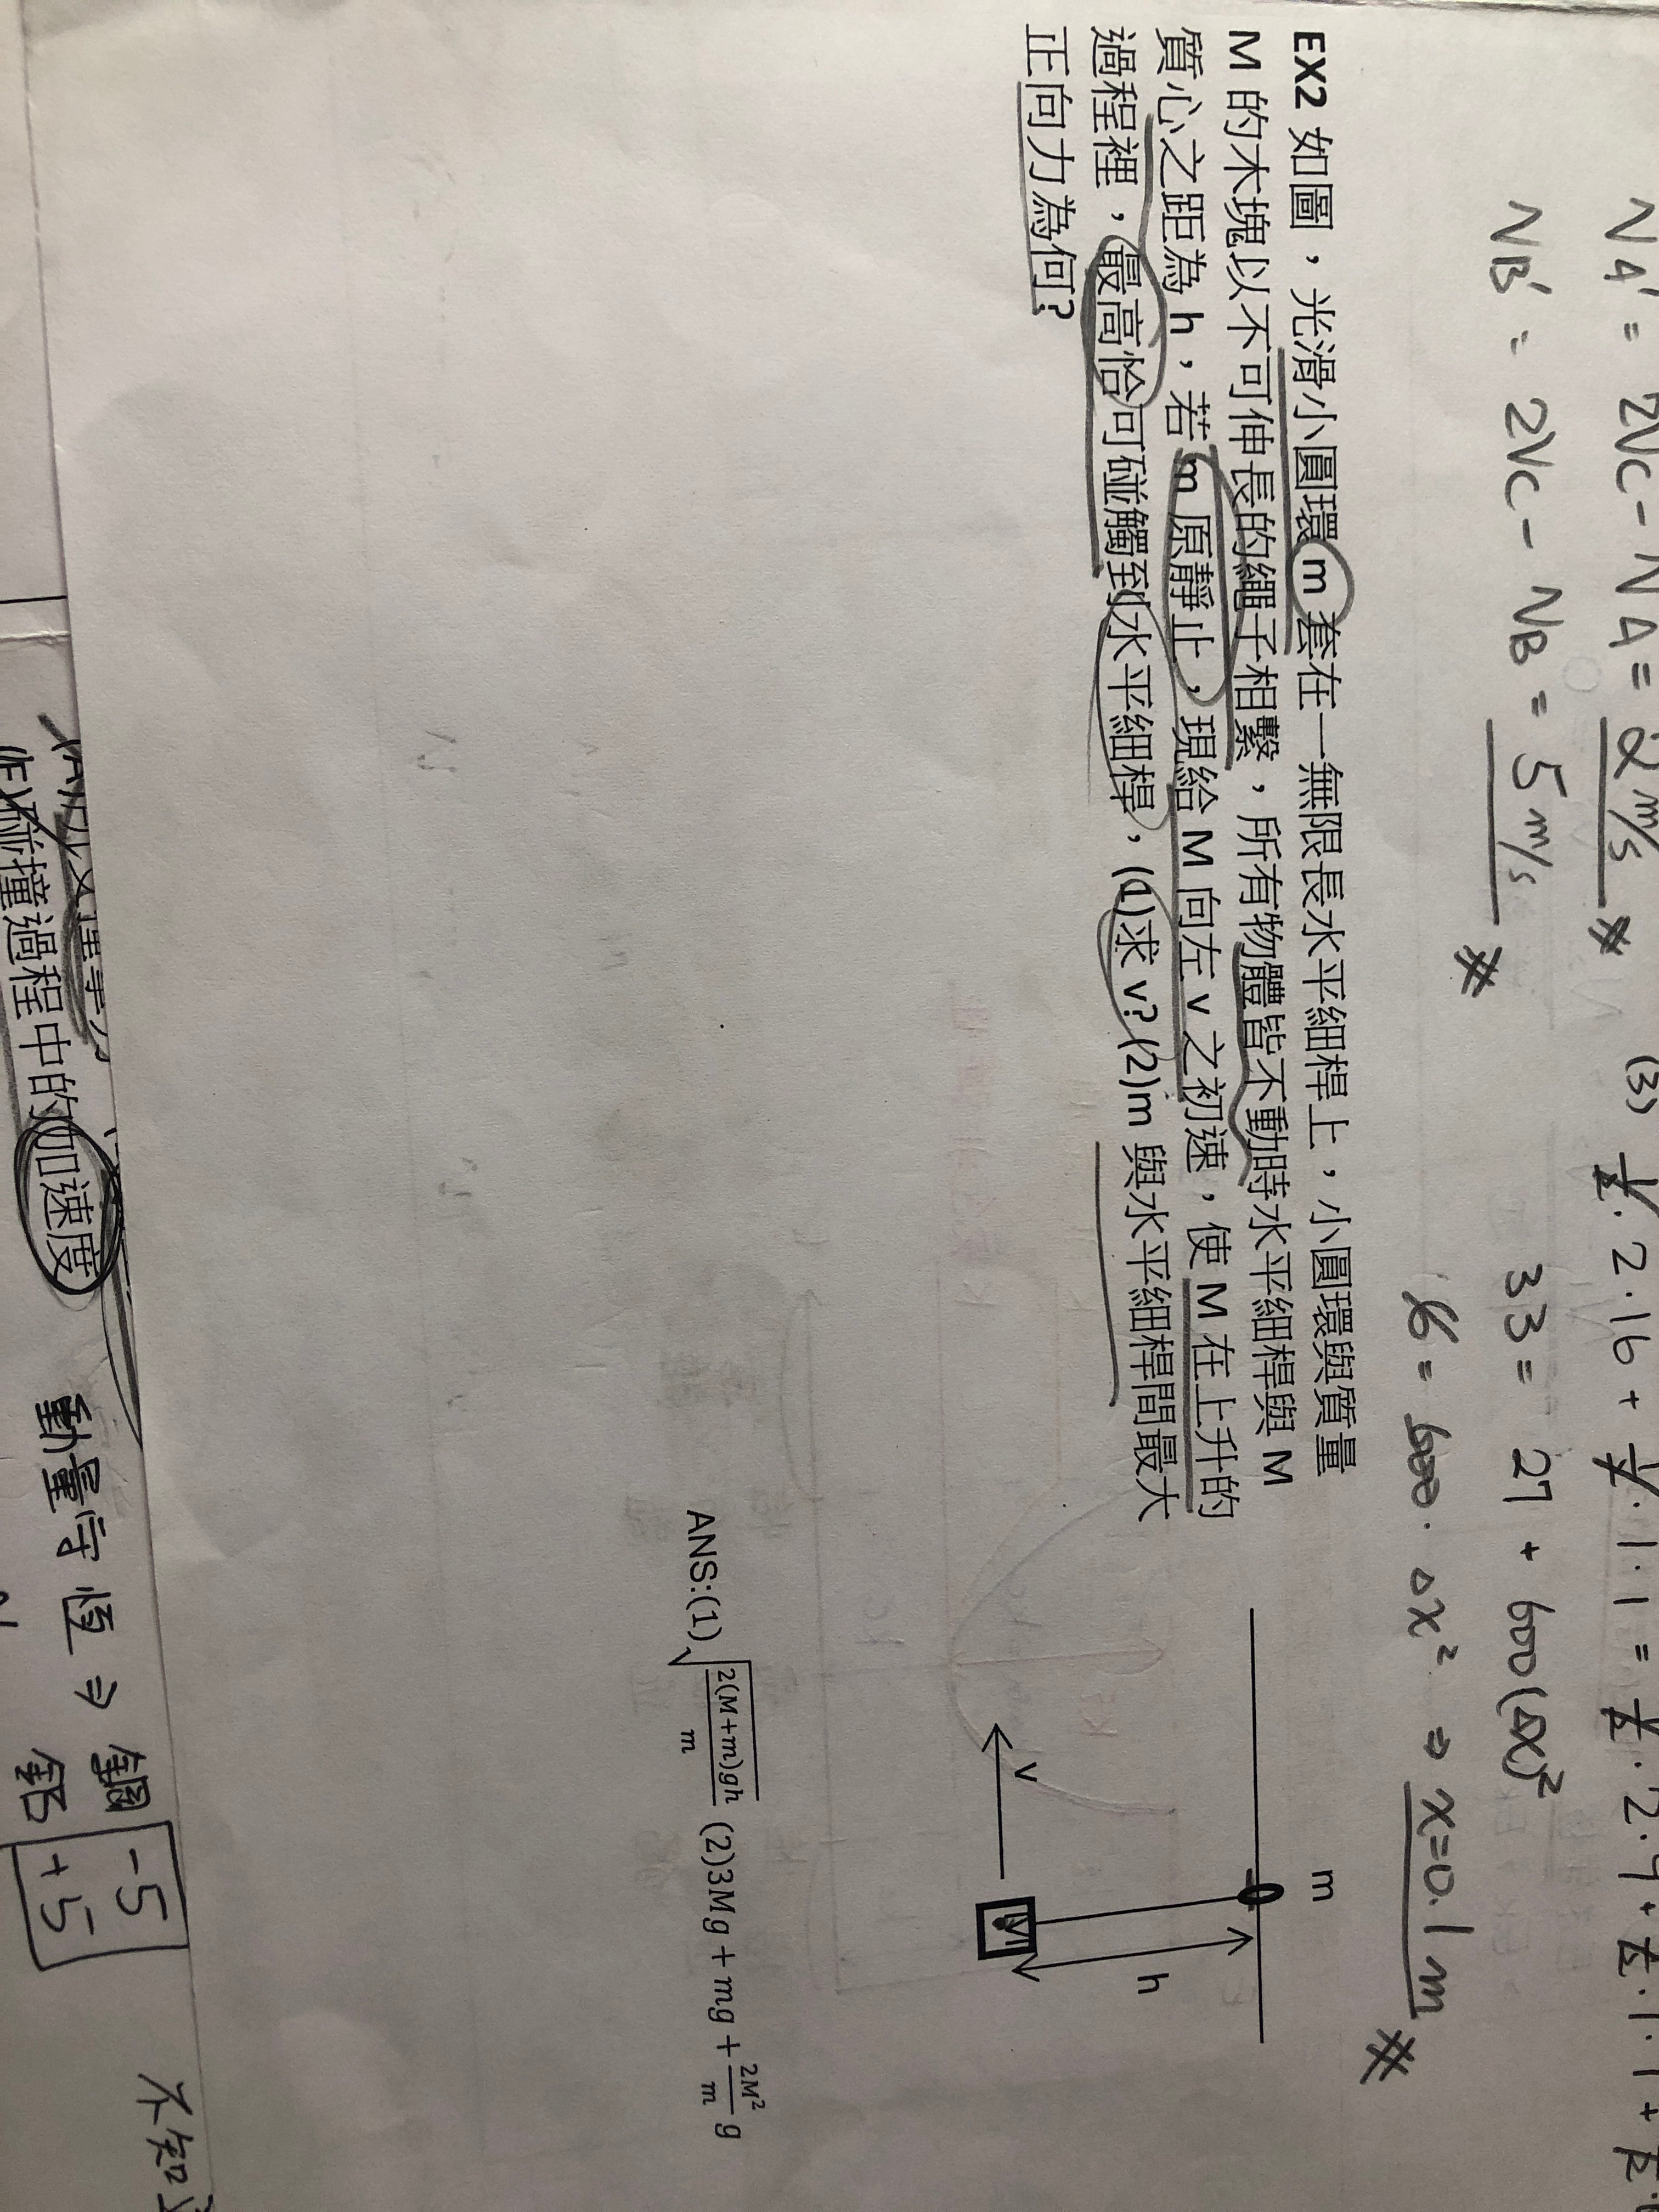 NA' = 2VC - NA = 2 m/s #
NB' = 2VC - NB = 5 m/s #
(3) 1/2 · 2 · 16 + 1/2 · 1 · 1 = 1/2 · 2 · 4 +
33 = 27 + 600(Δx)²
6 = 600 · Δx² ⇒ x = 0.1 m #
EX2 如圖，光滑小圓環 m 套在一無限長水平細桿上，小圓環與質量
M 的木塊以不可伸長的繩子相繫，所有物體皆不動時水平細桿與 M
質心之距為 h，若 m 原靜止，現給 M 向左 v 之初速，使 M 在上升的
過程裡，最高恰可碰觸到水平細桿，(1)求 v? (2)m 與水平細桿間最大
正向力為何?
m
h
M
v
ANS:(1)√(2(M+m)gh/m) (2)3Mg + mg + 2M²/m g
碰撞過程中的加速度
動量守恆 ⇒
-5
+5
不知